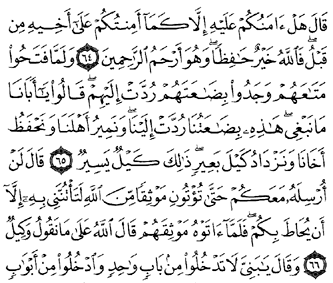 قَالَ هَلْ ءَامَنُكُمْ عَلَيْهِ إِلَّا كَمَآ أَمِنتُكُمْ عَلَىٰٓ أَخِيهِ مِن
قَبْلُ فَٱللَّهُ خَيْرٌ حَٰفِظًا وَهُوَ أَرْحَمُ ٱلرَّٰحِمِينَ ٦٤ وَلَمَّا فَتَحُوا۟
مَتَٰعَهُمْ وَجَدُوا۟ بِضَٰعَتَهُمْ رُدَّتْ إِلَيْهِمْ قَالُوا۟ يَٰٓأَبَانَا
مَا نَبْغِى هَٰذِهِۦ بِضَٰعَتُنَا رُدَّتْ إِلَيْنَا وَنَمِيرُ أَهْلَنَا وَنَحْفَظُ
أَخَانَا وَنَزْدَادُ كَيْلَ بَعِيرٍ ذَٰلِكَ كَيْلٌ يَسِيرٌ ٦٥ قَالَ لَنْ
أُرْسِلَهُۥ مَعَكُمْ حَتَّىٰ تُؤْتُونِ مَوْثِقًا مِّنَ ٱللَّهِ لَتَأْتُنَّنِى بِهِۦٓ إِلَّآ
أَن يُحَاطَ بِكُمْ فَلَمَّآ ءَاتَوْهُ مَوْثِقَهُمْ قَالَ ٱللَّهُ عَلَىٰ مَا نَقُولُ وَكِيلٌ
٦٦ وَقَالَ يَٰبَنِىَّ لَا تَدْخُلُوا۟ مِنۢ بَابٍ وَٰحِدٍ وَٱدْخُلُوا۟ مِنْ أَبْوَٰبٍ